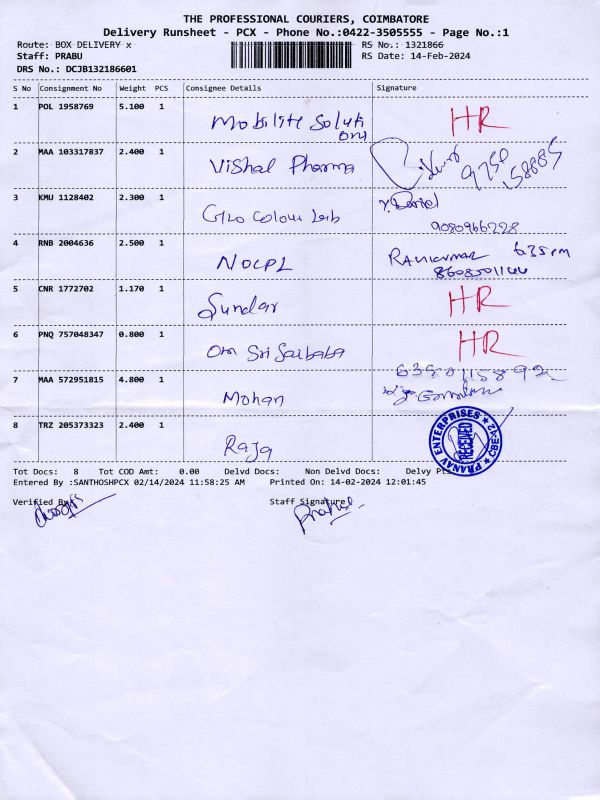 THE PROFESSIONAL COURIERS, COIMBATORE
Delivery Runsheet - PCX - Phone No.:0422-3505555 - Page No.:1
Route: BOX DELIVERY x RS No.: 1321866
Staff: PRABU RS Date: 14-Feb-2024
DRS No.: DCJB132186601
S No Consignment No Weight PCS Consignee Details Signature
1 POL 1958769 5.100 1 Mobilite Soluti HR
ons
2 MAA 103317837 2.400 1 Vishal Pharma 9750
158885
3 KMU 1128402 2.300 1 Glo Colour Lab Daniel
9080966228
4 RNB 2004636 2.500 1 NOCPL Ravikumar 6.35 pm
8608501144
5 CNR 1772702 1.170 1 Sundar HR
6 PNQ 757048347 0.800 1 Om Sri Saibaba HR
6380115892
7 MAA 572951815 4.800 1 Mohan
8 TRZ 205373323 2.400 1 Raja PRANAV ENTERPRISES RECEIVED
Tot Docs: 8 Tot COD Amt: 0.00 Delvd Docs: Non Delvd Docs: Delvy Pts
Entered By :SANTHOSHPCX 02/14/2024 11:58:25 AM Printed On: 14-02-2024 12:01:45
Verified By Staff Signature
Prabu